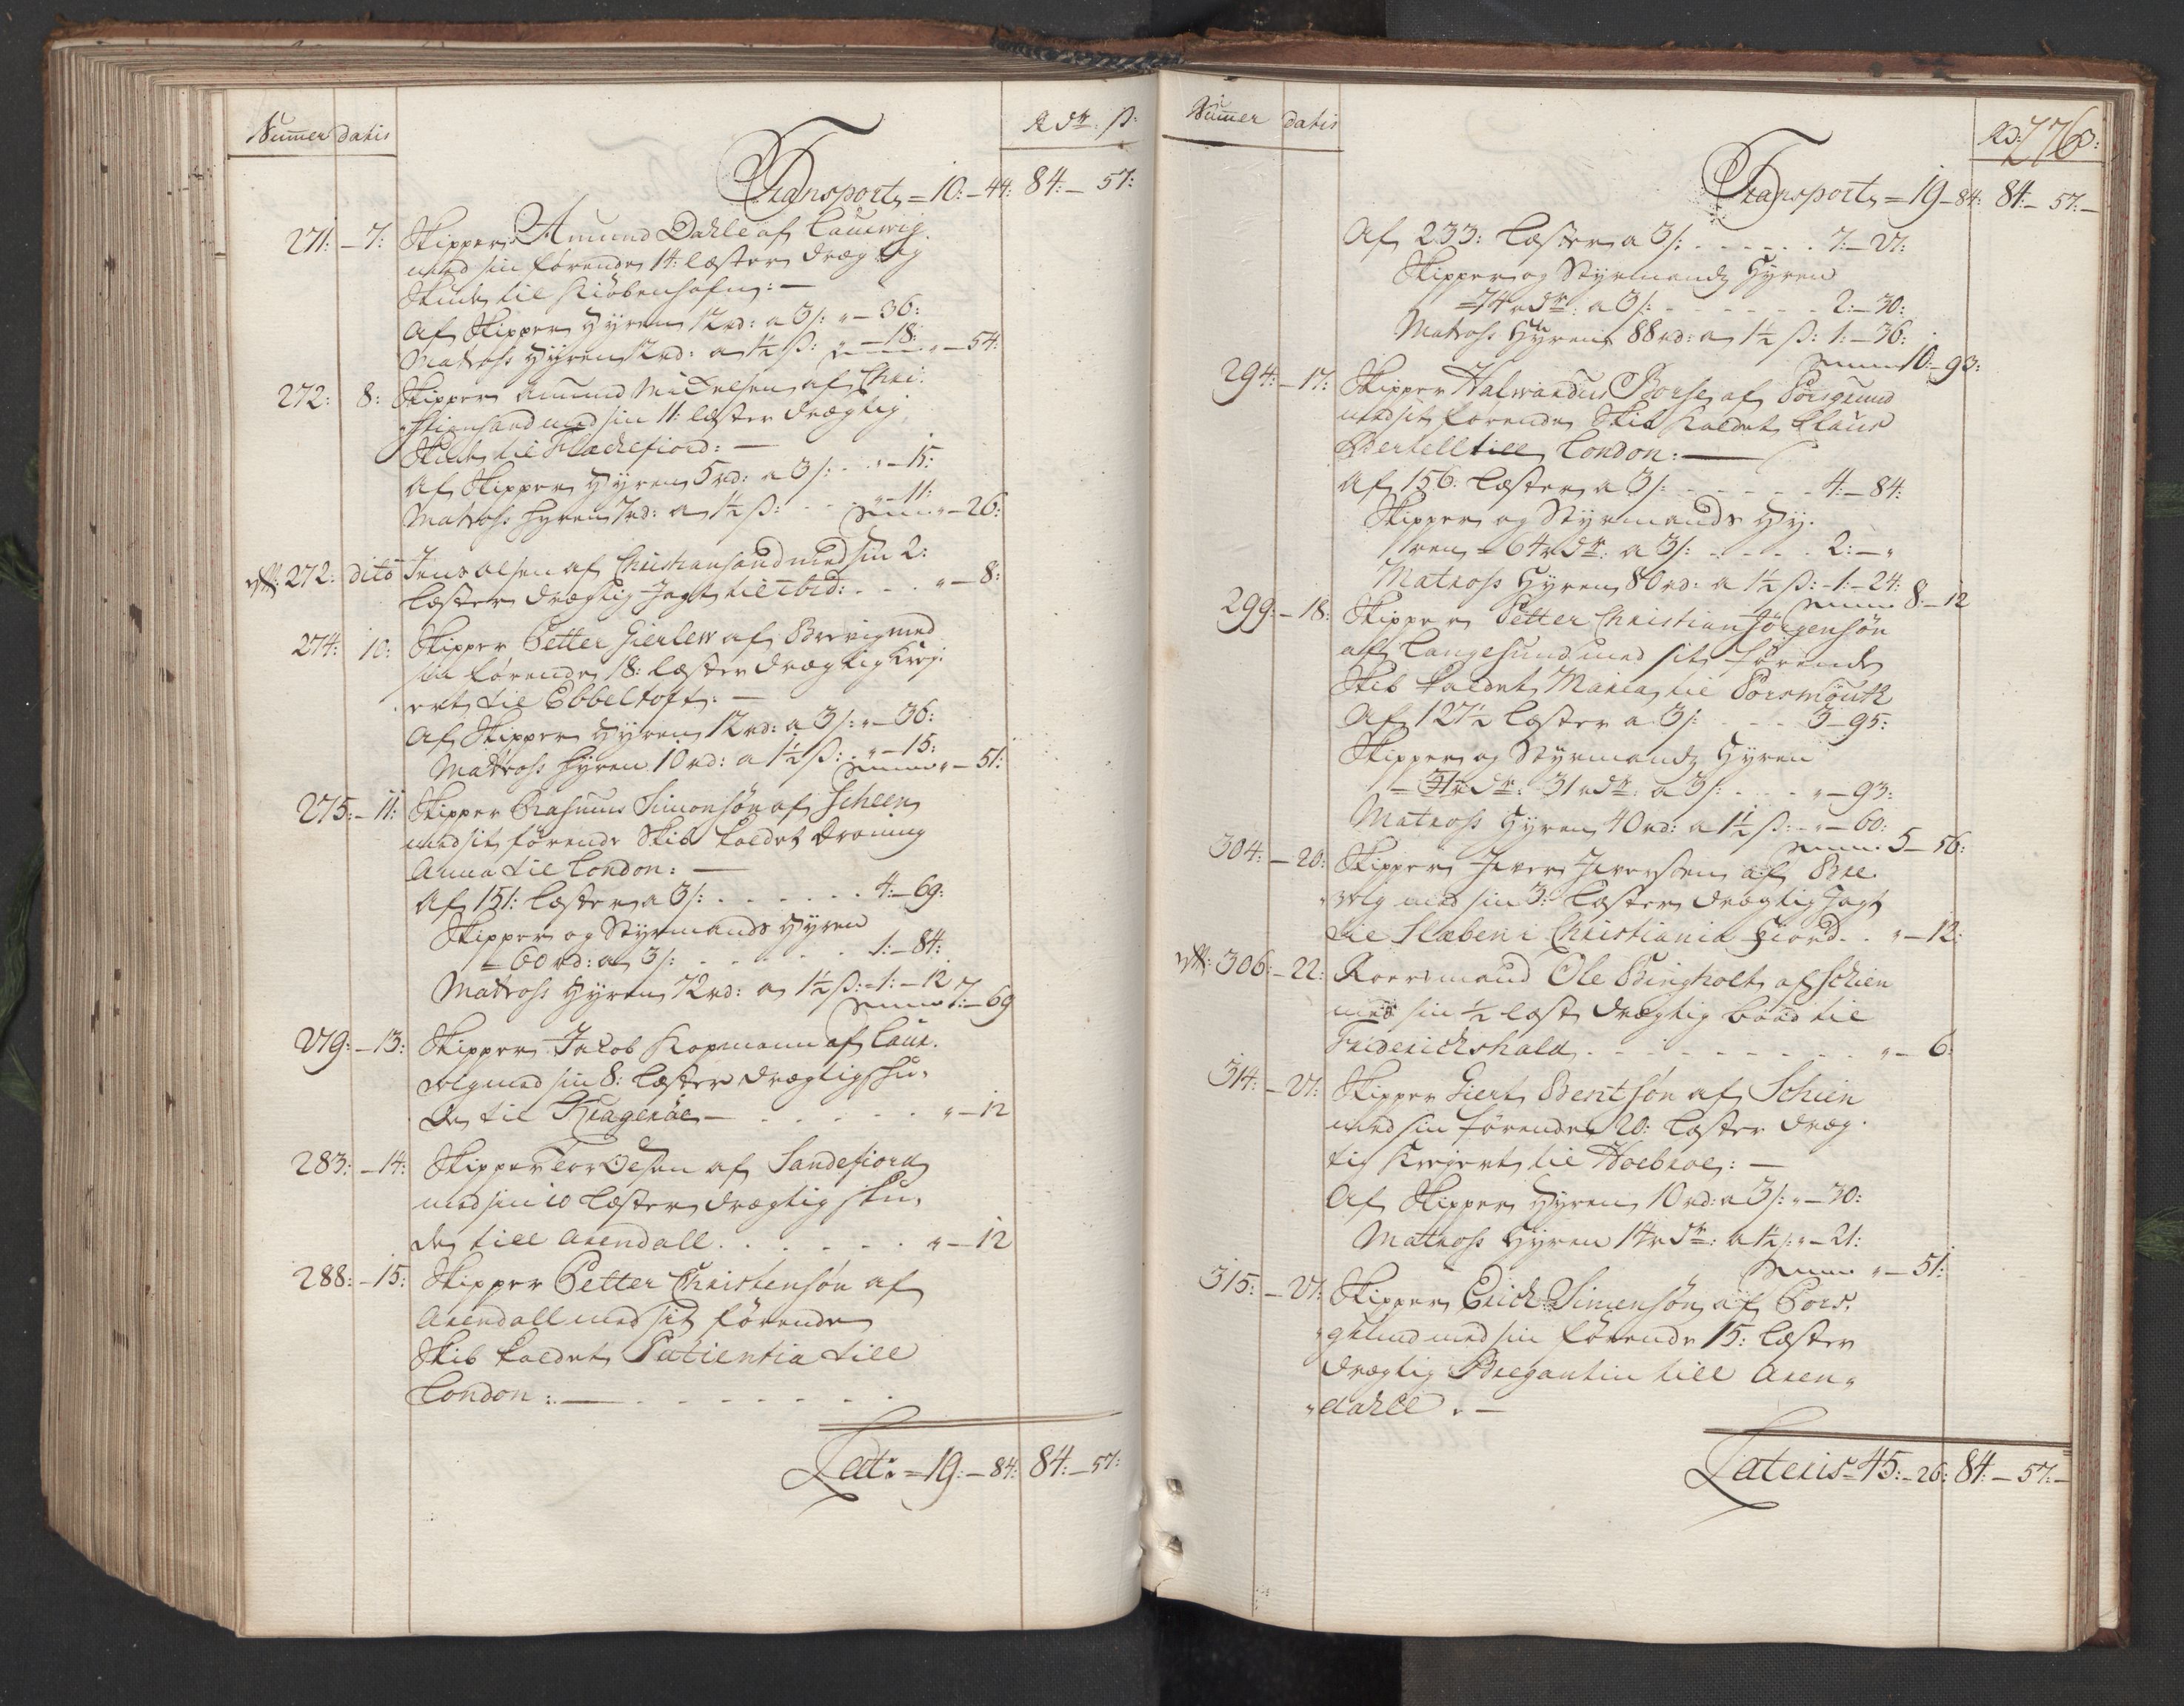 Numer datis Rdr: ß:
Transport = 10: — 44: 84: — 57:
271: — 7: Skipper Amund Dahle af Laurwig
med sin førende 14: læster drægtig
Skude til Kiøbenhafn: —
Af Skipper Hyren 12 rd: a 3 ß: „ — 36:
Matross Hyren 12 rd: a 1½ ß: „ — 18:
Summa „ — 54:
272: 8: Skipper Amund Mickelsen af Chri:
stiansand med sin 11: læster drægtig
Skude til Fleckefiord: —
Af Skipper Hyren 5 rd: a 3 ß: . „ — 15:
Matross hyren 7 rd: a 1½ ß: . . „ — 11:
Summa „ — 26:
272: dito Jens Olsen af Christiansand med sin 2:
læster drægtig Jagt til ibid: . . . „ — 8:
274: 10: Skipper Petter Gierlew af Brevig med
sin førende 18: læster drægtig Krej:
ert til Ebbeltoft: —
Af Skipper Hyren 12 rd: a 3 ß: „ — 36:
Matross hyren 10 rd: a 1½ ß: „ — 15:
Summa „ — 51:
275: — 11: Skipper Rasmus Simonsøn af Scheen
med sit førende Skib kaldet Droning
Anna til London: —
Af 151: læster a 3 ß: . . . . . . 4: — 69:
Skipper og Styrmands Hyren
= 60 rd: a 3 ß: . . . . . . 1: — 84:
Matross Hyren 72 rd: a 1½ ß: = 1: — 12
Summa 7: — 69
279: — 13: Skipper Jacob Kopmann af Laur:
volg med sin 8: læster drægtig sku„
de til Kragerøe — . . . . . „ — 12
283: — 14: Skipper Tor Olsen af Sandefiord
med sin 10 læster drægtig sku„
de till Arendall . . . . . . „ — 12
288: — 15: Skipper Petter Christensøn af
Arendall med sit førende
Skib kaldet Patientia till
London: — . . . . . .
Lat: = 19: — 84: 84: — 57:
Numer datis Rd: 276 ß:
Transport = 19 — 84: 84: — 57: —
Af 233: læster a 3 ß: . . . . . . 7: — 27:
Skipper og Styrmands Hyren
= 74 rdr: a 3 ß: . . . . . . 2: — 30:
Matross Hyren 88 rd: a 1½ ß: 1: — 36:
Summa 10: — 93:
294: — 17: Skipper Halwardus Borse af Porsgrund
med sit førende Skib kaldet Claus
Bertell till London: —
Af 156: læster a 3 ß: . . . . . 4: — 84:
Skipper og Styrmands Hy:
ren = 64 rdr: a 3 ß: . . . . 2: — „
Matross Hyren 80 rd: a 1½ ß: - 1: — 24:
Summa 8: — 12
299: — 18: Skipper Petter Christian Jørgensøn
af Langesund med sit førende
Skib kaldet Maria til Porsmouth
Af 127½ læster a 3 ß: . . . 3 — 95:
Skipper og Styrmands Hyren
= 31 rdr: 31 rdr: a 3 ß: . . . „ — 93:
Matross Hyren 40 rd: a 1½ ß: - „ — 60:
Summa 5 — 56:
304: — 20: Skipper Iver Iversen af Bre
velg med sin 3: læster drægtig Jagt
til Slæben i Christiania Fiord . . „ — 12:
306: — 22: Roersmand Ole Bingholt af Schien
med sin ½ læst drægtig baad til
Friderichshald . . . . . . . . „ — 6:
314: — 27: Skipper Giert Beritsøn af Schien
med sin førende 20: læster dræg:
tig Krejert til Hoebroe: —
Af Skipper Hyren 10 rd: a 3 ß: „ — 30:
Matross Hyren 14 rdr: a 1½ ß: „ — 21:
Summa „ — 51:
315: — 27: Skipper Erich Simensøn af Pors:
„grund med sin førende 15: læster
drægtig Bregantin till Aren„
„dahll . —
Lateris = 45: — 26: 84: — 57: —